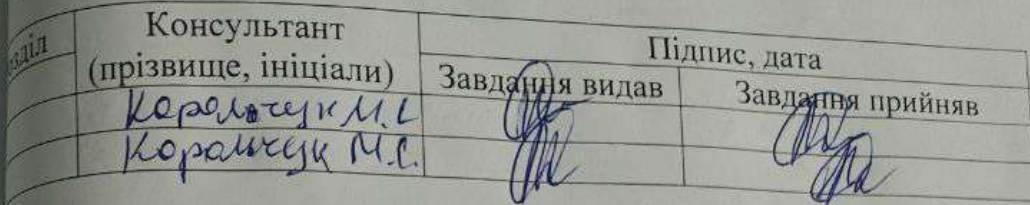 Консультант
(прізвище, ініціали)
Підпис, дата
Завдання видав
Завдання прийняв
Корольчук М.С.
Корольчук М.С.